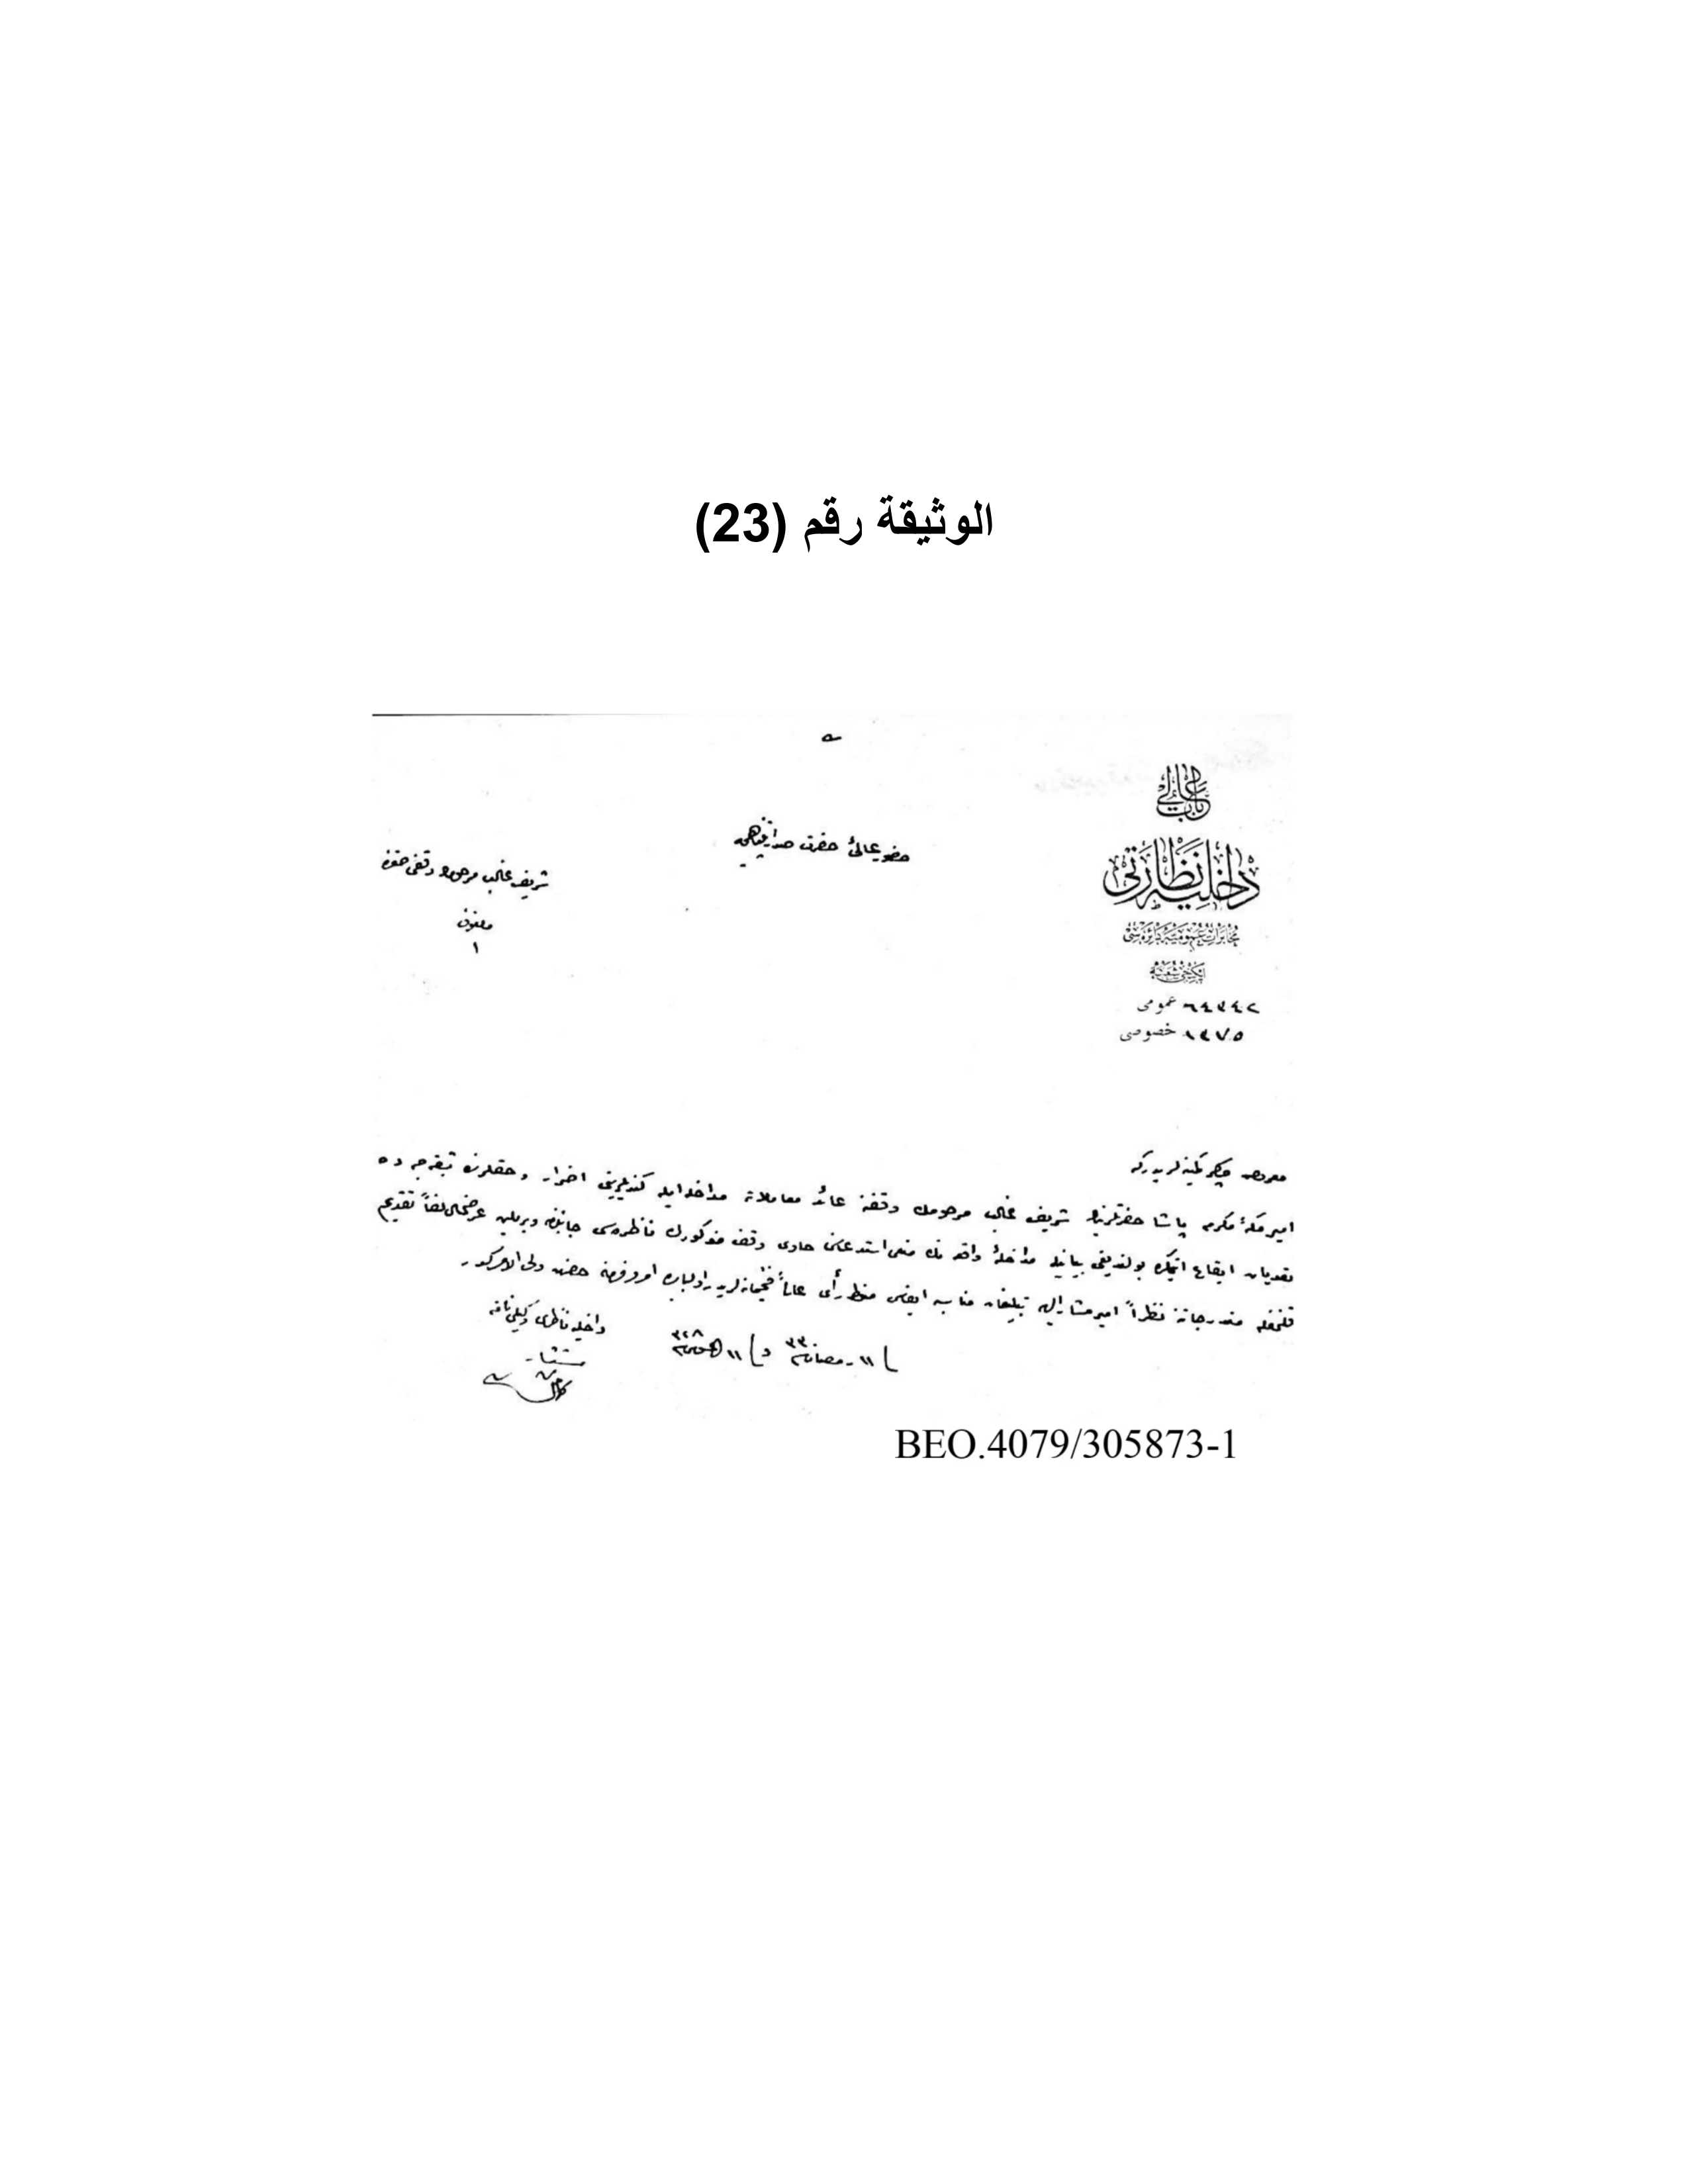 الوثيقة رقم (23)
باب عالی
داخلیه نظارتی
مخابرات عمومیه دائره سی
ایکنجی شعبه
عمومی ٦٤٣٤٢
خصوصی ١٤٧٥
حضور عالئ حضرت صدارتپناهی یه
شریف غالب مرحومك وقفی حقنده
ملفوف
١
معروض چاکر کمینه لریدرکه
امیر مکۀ مکرمه پاشا حضرتلرینك شریف غالب مرحومك وقفنه عائد معاملاته مداخله ایله کندیلرینی اضرار و حقلرنده
تعدیات ایقاع ایتمکده بولندیغی بیانیله مداخلۀ واقعه نك منعی استدعاسنی حاوی وقف مذکورك ناظره سی جانبندن ویریلن عرضحال لفاً تقدیم
قلنمغله مندرجاته نظراً امیر مشار الیه تبلیغات مناسبه ایفاسی منوط رأی عالئ فخیمانه لریدر اولبابده امر و فرمان حضرت ولی الامرکدر
١١ رمضان سنه ٣٣٠ و ١١ اغستوس سنه ٣٢٨
داخلیه ناظری وکیلی نامنه
مستشار
BEO.4079/305873-1